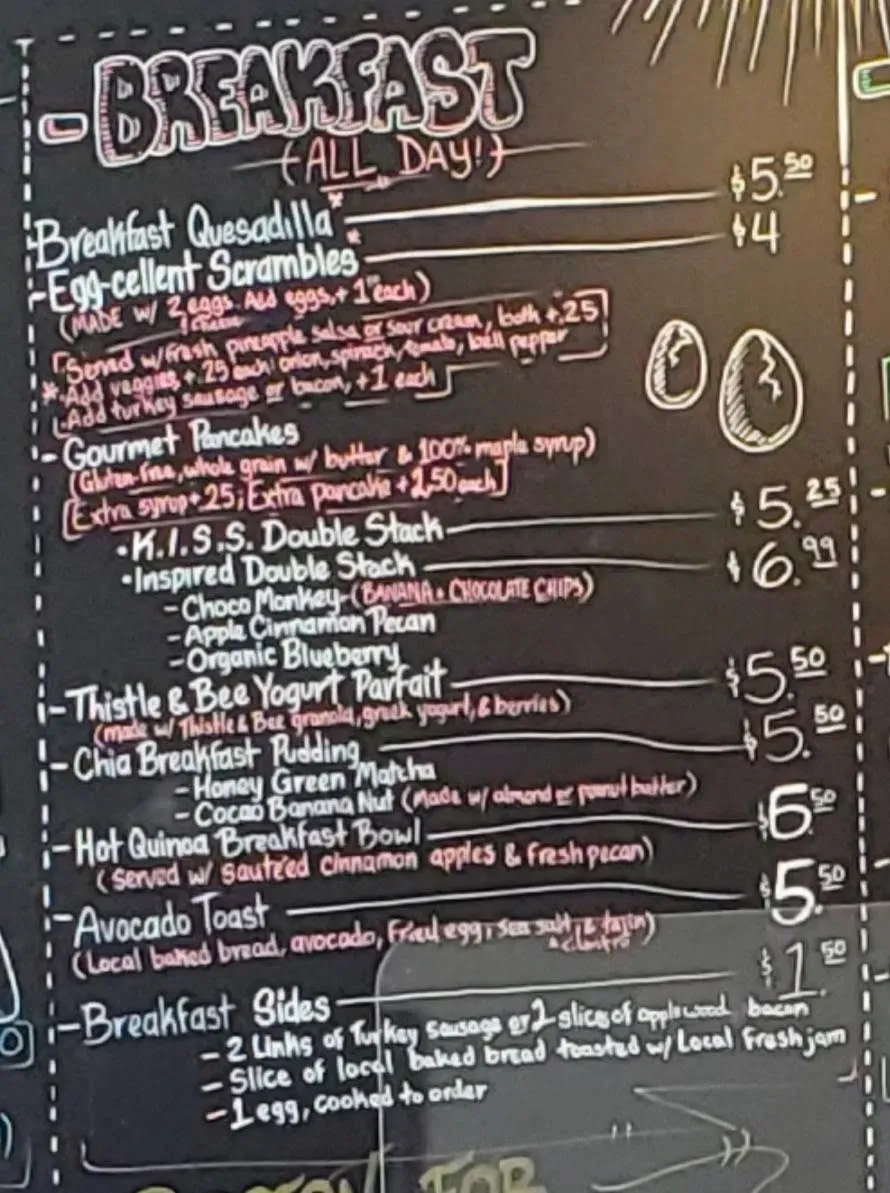 - BREAKFAST
(ALL DAY!)
- Breakfast Quesadilla* $5.50
- Egg-cellent Scrambles* $4
(MADE w/ 2 eggs. Add eggs, + 1 each)
& cheese
Served w/ fresh pineapple salsa or sour cream, both +.25
* - Add veggies, +.25 each: onion, spinach, tomato, bell pepper
- Add turkey sausage or bacon, +1 each
- Gourmet Pancakes
(Gluten-free, whole grain w/ butter & 100% maple syrup)
[Extra syrup +.25; Extra pancake + 2.50 each]
• K.I.S.S. Double Stack $5.25
• Inspired Double Stack $6.99
- Choco Monkey - (BANANA & CHOCOLATE CHIPS)
- Apple Cinnamon Pecan
- Organic Blueberry
- Thistle & Bee Yogurt Parfait $5.50
(made w/ Thistle & Bee granola, greek yogurt, & berries)
- Chia Breakfast Pudding $5.50
- Honey Green Matcha
- Cocao Banana Nut (Made w/ almond or peanut butter)
- Hot Quinoa Breakfast Bowl $6.50
(Served w/ sauteed cinnamon apples & fresh pecan)
- Avocado Toast $5.50
(Local baked bread, avocado, fried egg, sea salt, & tajin)
& cilantro
- Breakfast Sides $1.50
- 2 Links of Turkey Sausage or 2 slices of applewood bacon
- Slice of local baked bread toasted w/ Local Fresh jam
- 1 egg, cooked to order
FOR